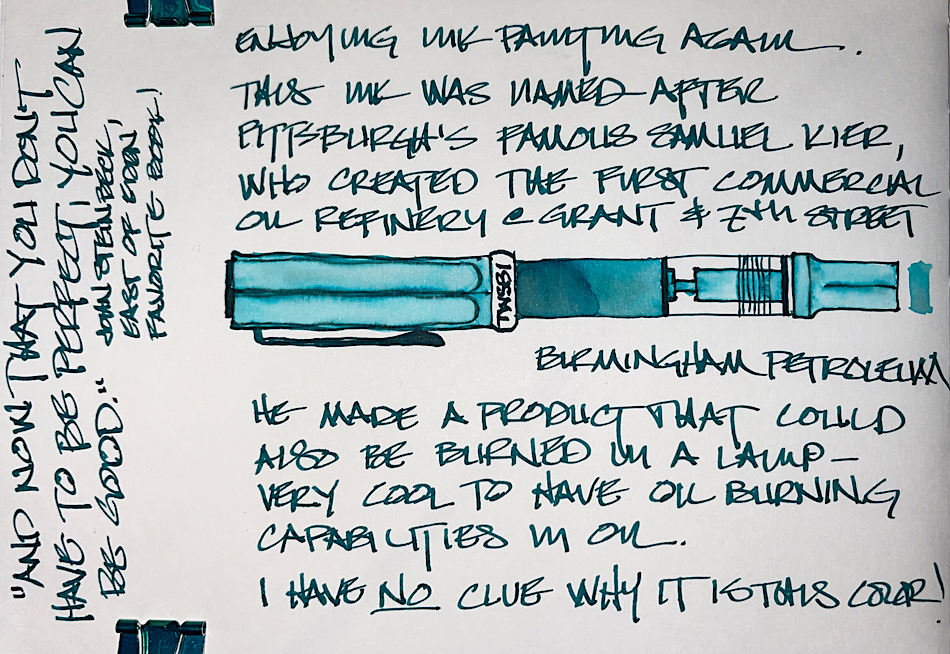 "AND NOW THAT YOU DON'T
HAVE TO BE PERFECT, YOU CAN
BE GOOD."
JOHN STEINBECK,
EAST OF EDEN,
FAVORITE BOOK!
ENJOYING INK PAINTING AGAIN.
THIS INK WAS NAMED AFTER
PITTSBURGH'S FAMOUS SAMUEL KIER,
WHO CREATED THE FIRST COMMERCIAL
OIL REFINERY @ GRANT & 7TH STREET
TWSBI
BIRMINGHAM PETROLEUM
HE MADE A PRODUCT THAT COULD
ALSO BE BURNED IN A LAMP—
VERY COOL TO HAVE OIL BURNING
CAPABILITIES IN OIL.
I HAVE NO CLUE WHY IT IS THIS COLOR!